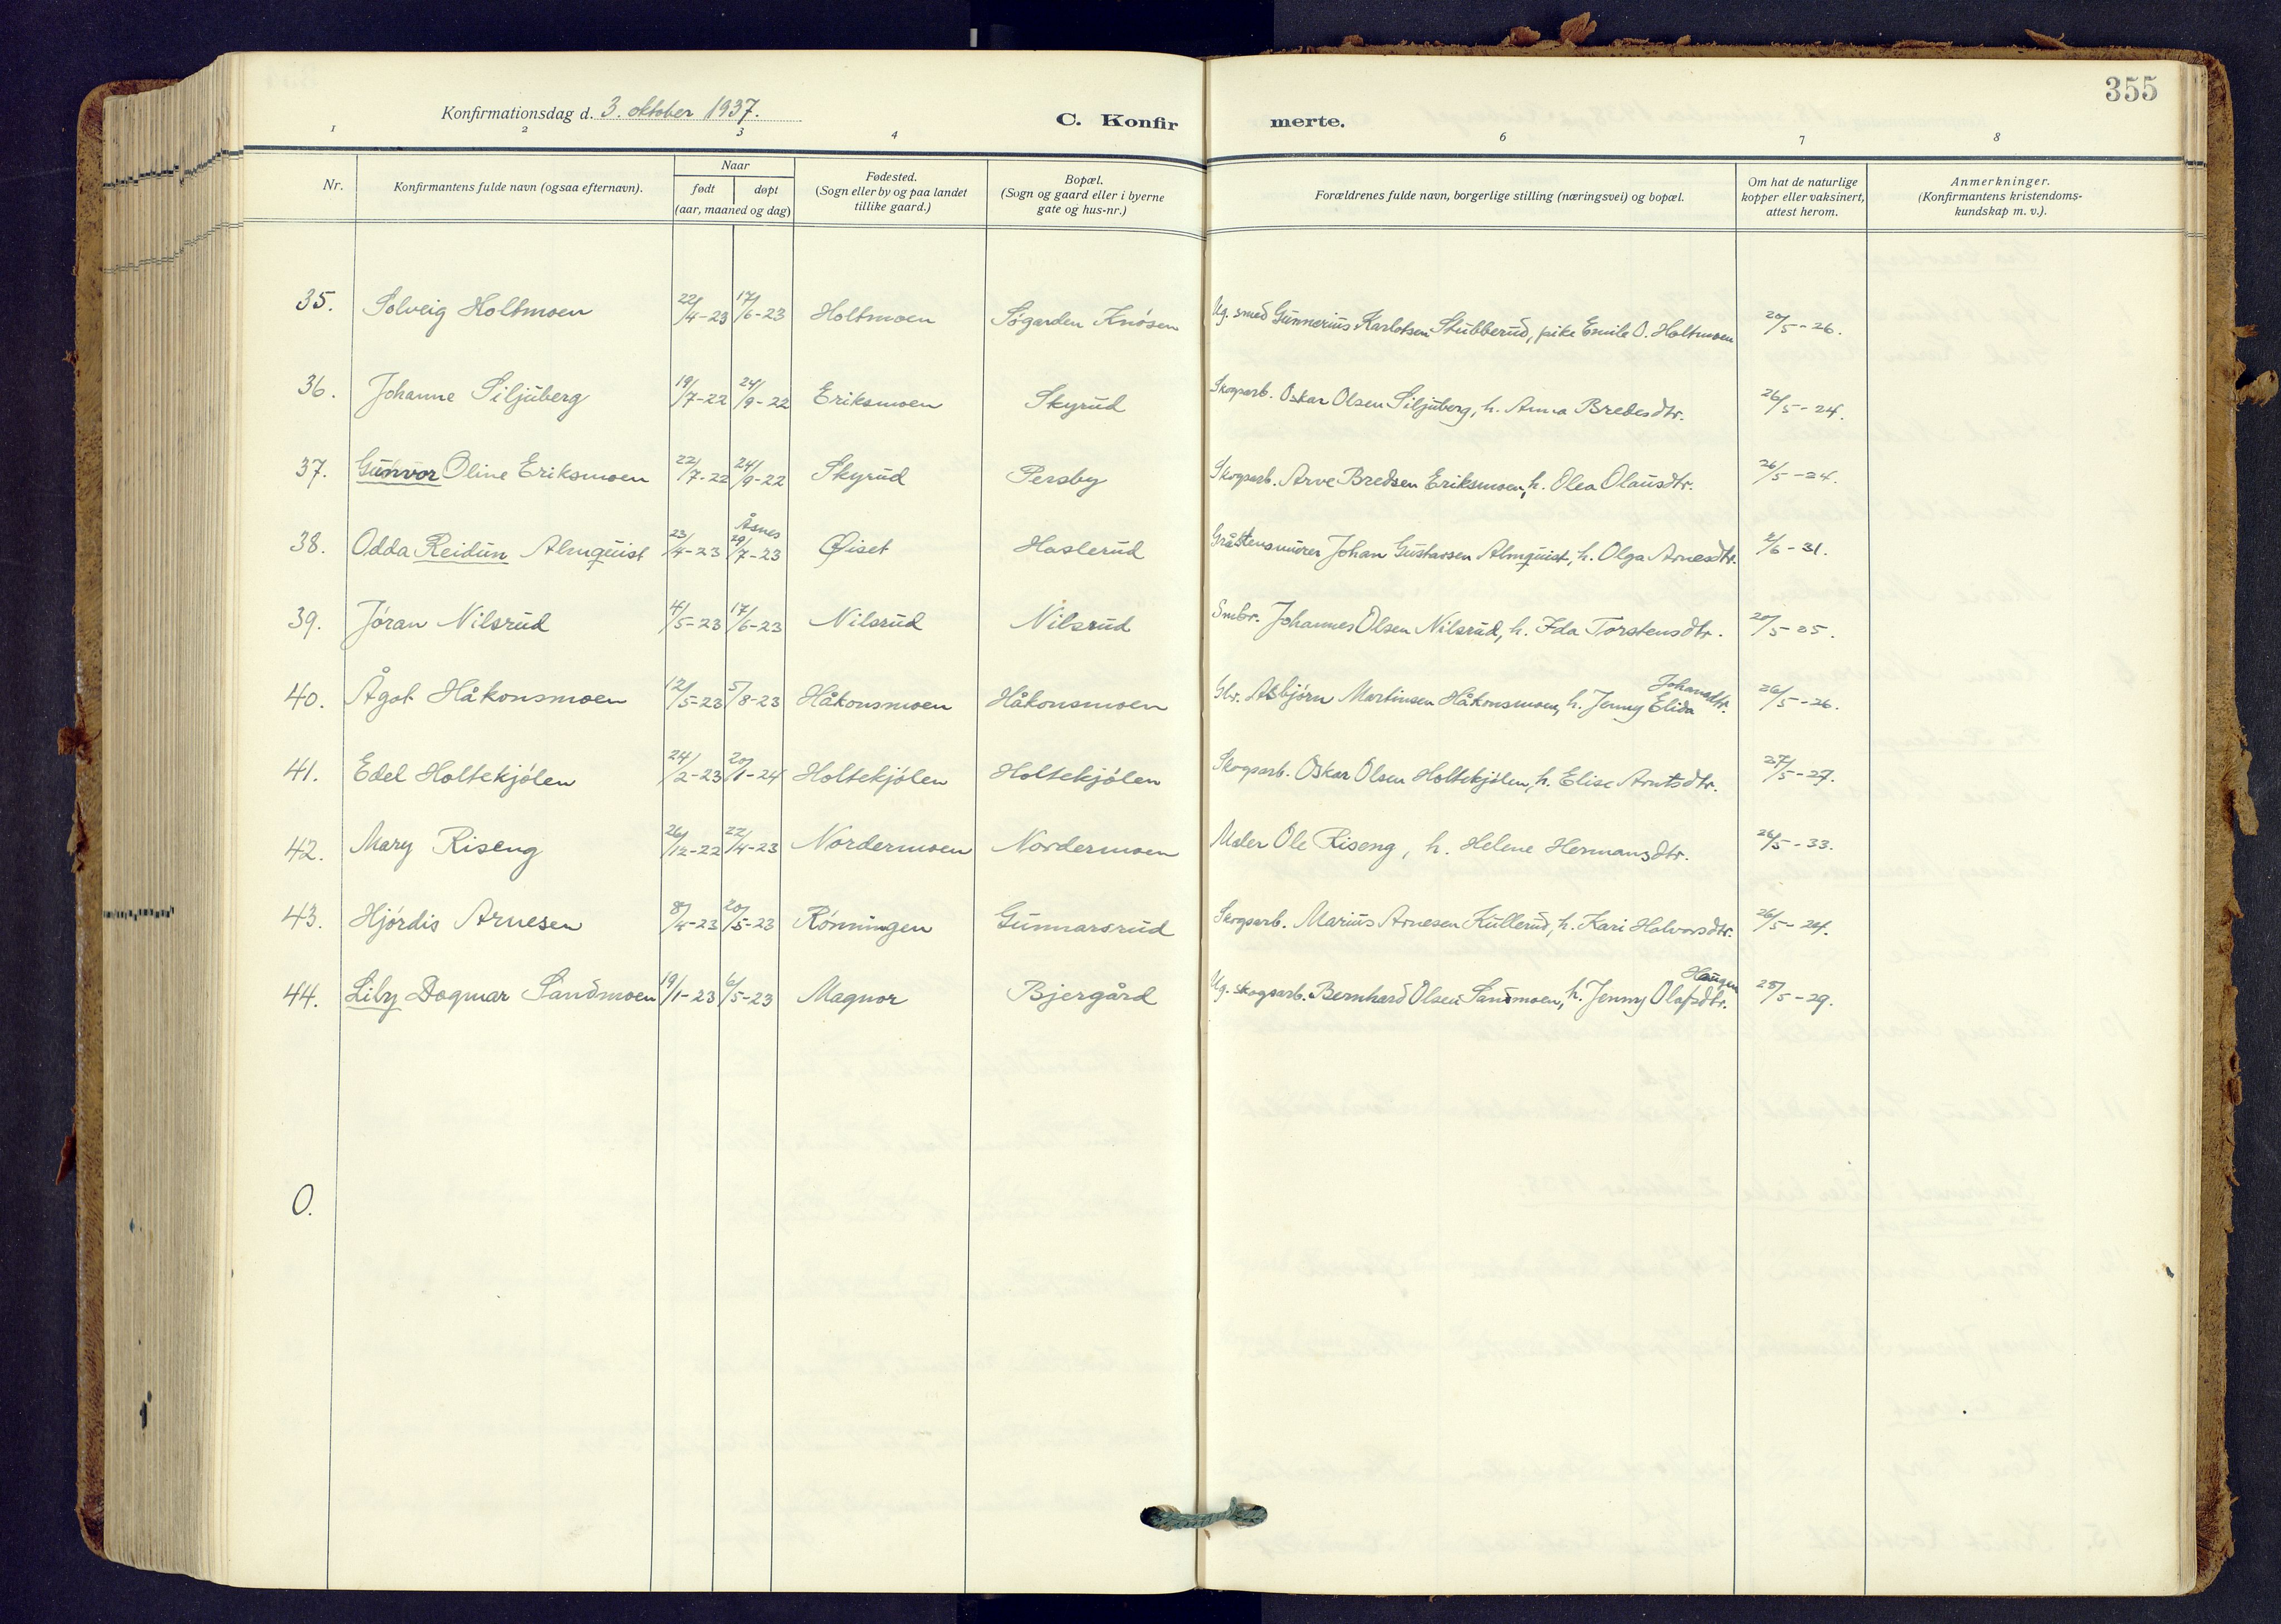 355
Konfirmationsdag d. 3. oktober 1937.
C. Konfirmerte.
1 2 3 4 6 7 8
Nr.
Konfirmantens fulde navn (ogsaa efternavn).
Naar
født døpt
(aar, maaned og dag)
Fødested.
(Sogn eller by og paa landet
tillike gaard.)
Bopæl.
(Sogn og gaard eller i byerne
gate og hus-nr.)
Forældrenes fulde navn, borgerlige stilling (næringsvei) og bopæl.
Om hat de naturlige
kopper eller vaksinert,
attest herom.
Anmerkninger.
(Konfirmantens kristendoms-
kundskap m. v.).
35. Solveig Holtmoen 22/4-23 17/6-23 Holtmoen Søgarden Knøsen Ug. smed Gunnerius Karlotsen Stubberud, pike Emile O. Holtmoen 20/5-26.
36. Johanne Siljuberg 19/7-22 24/9-22 Eriksmoen Skyrud Skogsarb. Oskar Olsen Siljuberg, h. Anna Bredesdtr. 26/5-24.
37. Gunvor Oline Eriksmoen 22/7-22 24/9-22 Skyrud Persby Skogsarb. Arve Bredsen Eriksmoen, h. Olea Olausdtr. 26/5-24.
38. Odda Reidun Almquist 23/4-23 Åsnes 29/7-23 Øiset Haslerud Gråstensmurer Johan Gustavsen Almquist, h. Olga Arnesdtr. 2/6-31.
39. Jøran Nilsrud 4/5-23 17/6-23 Nilsrud Nilsrud Smbr. Johannes Olsen Nilsrud, h. Ida Torstensdtr. 20/5-25.
40. Ågot Håkonsmoen 12/5-23 5/8-23 Håkonsmoen Håkonsmoen Gbr. Asbjørn Martinsen Håkonsmoen, h. Jenny Elida Johansdtr. 26/5-26.
41. Edel Holtekjølen 24/2-23 20/1-24 Holtekjølen Holtekjølen Skogsarb. Oskar Olsen Holtekjølen, h. Elise Arntsdtr. 27/5-27.
42. Mary Riseng 26/12-22 22/4-23 Nordermoen Nordermoen Maler Ole Riseng, h. Helene Hermansdtr. 26/5-33.
43. Hjørdis Arnesen 8/4-23 20/5-23 Rønningen Gunnarsrud Skogsarb. Marius Arnesen Kullerud, h. Kari Halvorsdtr. 26/5-24.
44. Liby Dagmar Sandmoen 19/1-23 6/5-23 Magnor Bjergård Ug. skogsarb. Bernhard Olsen Sandmoen, h. Jenny Olafsdtr. Haugen 28/5-29.
0.